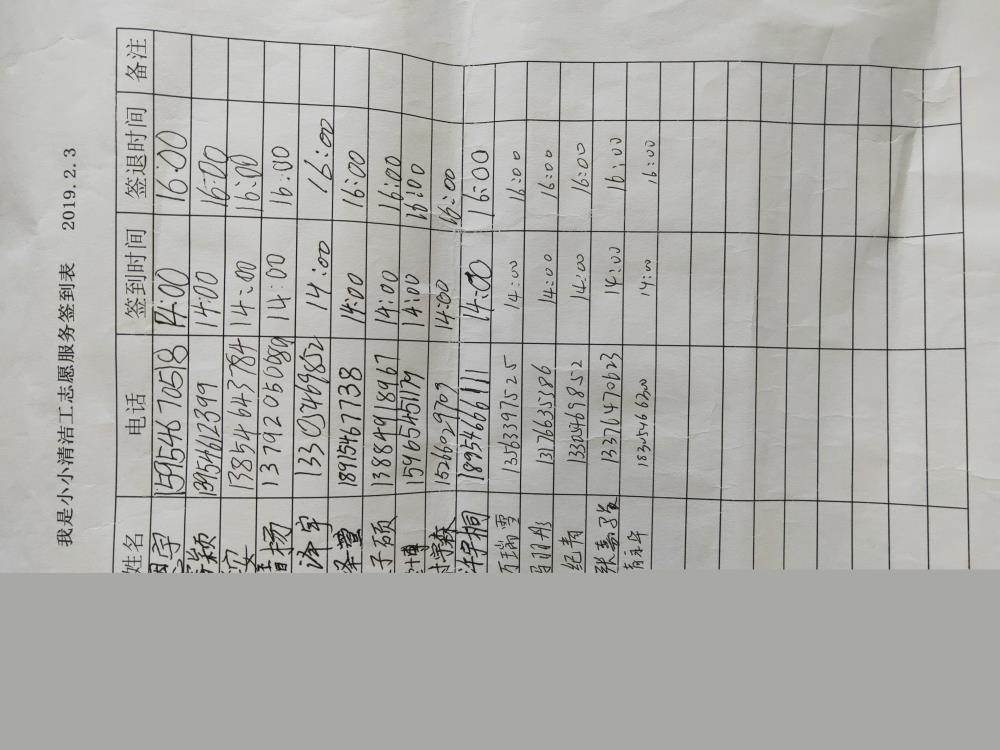 我是小小清洁工志愿服务签到表 2019.2.3
姓名 电话 签到时间 签退时间 备注
宇 15954670518 14:00 16:00
颖 13954612399 14:00 16:00
13854643784 14:00 16:00
扬 13792050089 14:00 16:00
泽宇 13305469852 14:00 16:00
萱 18915467738 14:00 16:00
子硕 13884918967 14:00 16:00
博 15965451179 14:00 16:00
森 15266029709 14:00 16:00
许宇桐 18954666111 14:00 16:00
瑞雪 13563397525 14:00 16:00
彤 13176635386 14:00 16:00
纪青 13305469852 14:00 16:00
张嘉 13371470623 14:00 16:00
18305466200 14:00 16:00